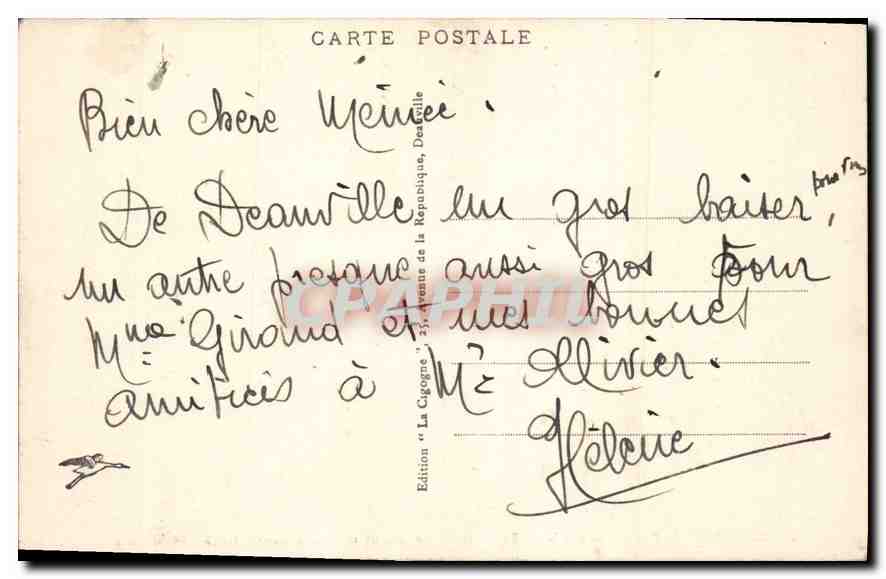 CARTE POSTALE
Bien chère Mémée.
De Deauville un gros baiser, pour
un autre presque aussi gros pour
Mme Giraud et mes bonnes
amitiés à Mr Olivier.
Hélène
Edition "La Cigogne", 25, Avenue de la République, Deauville
CPAPHIL